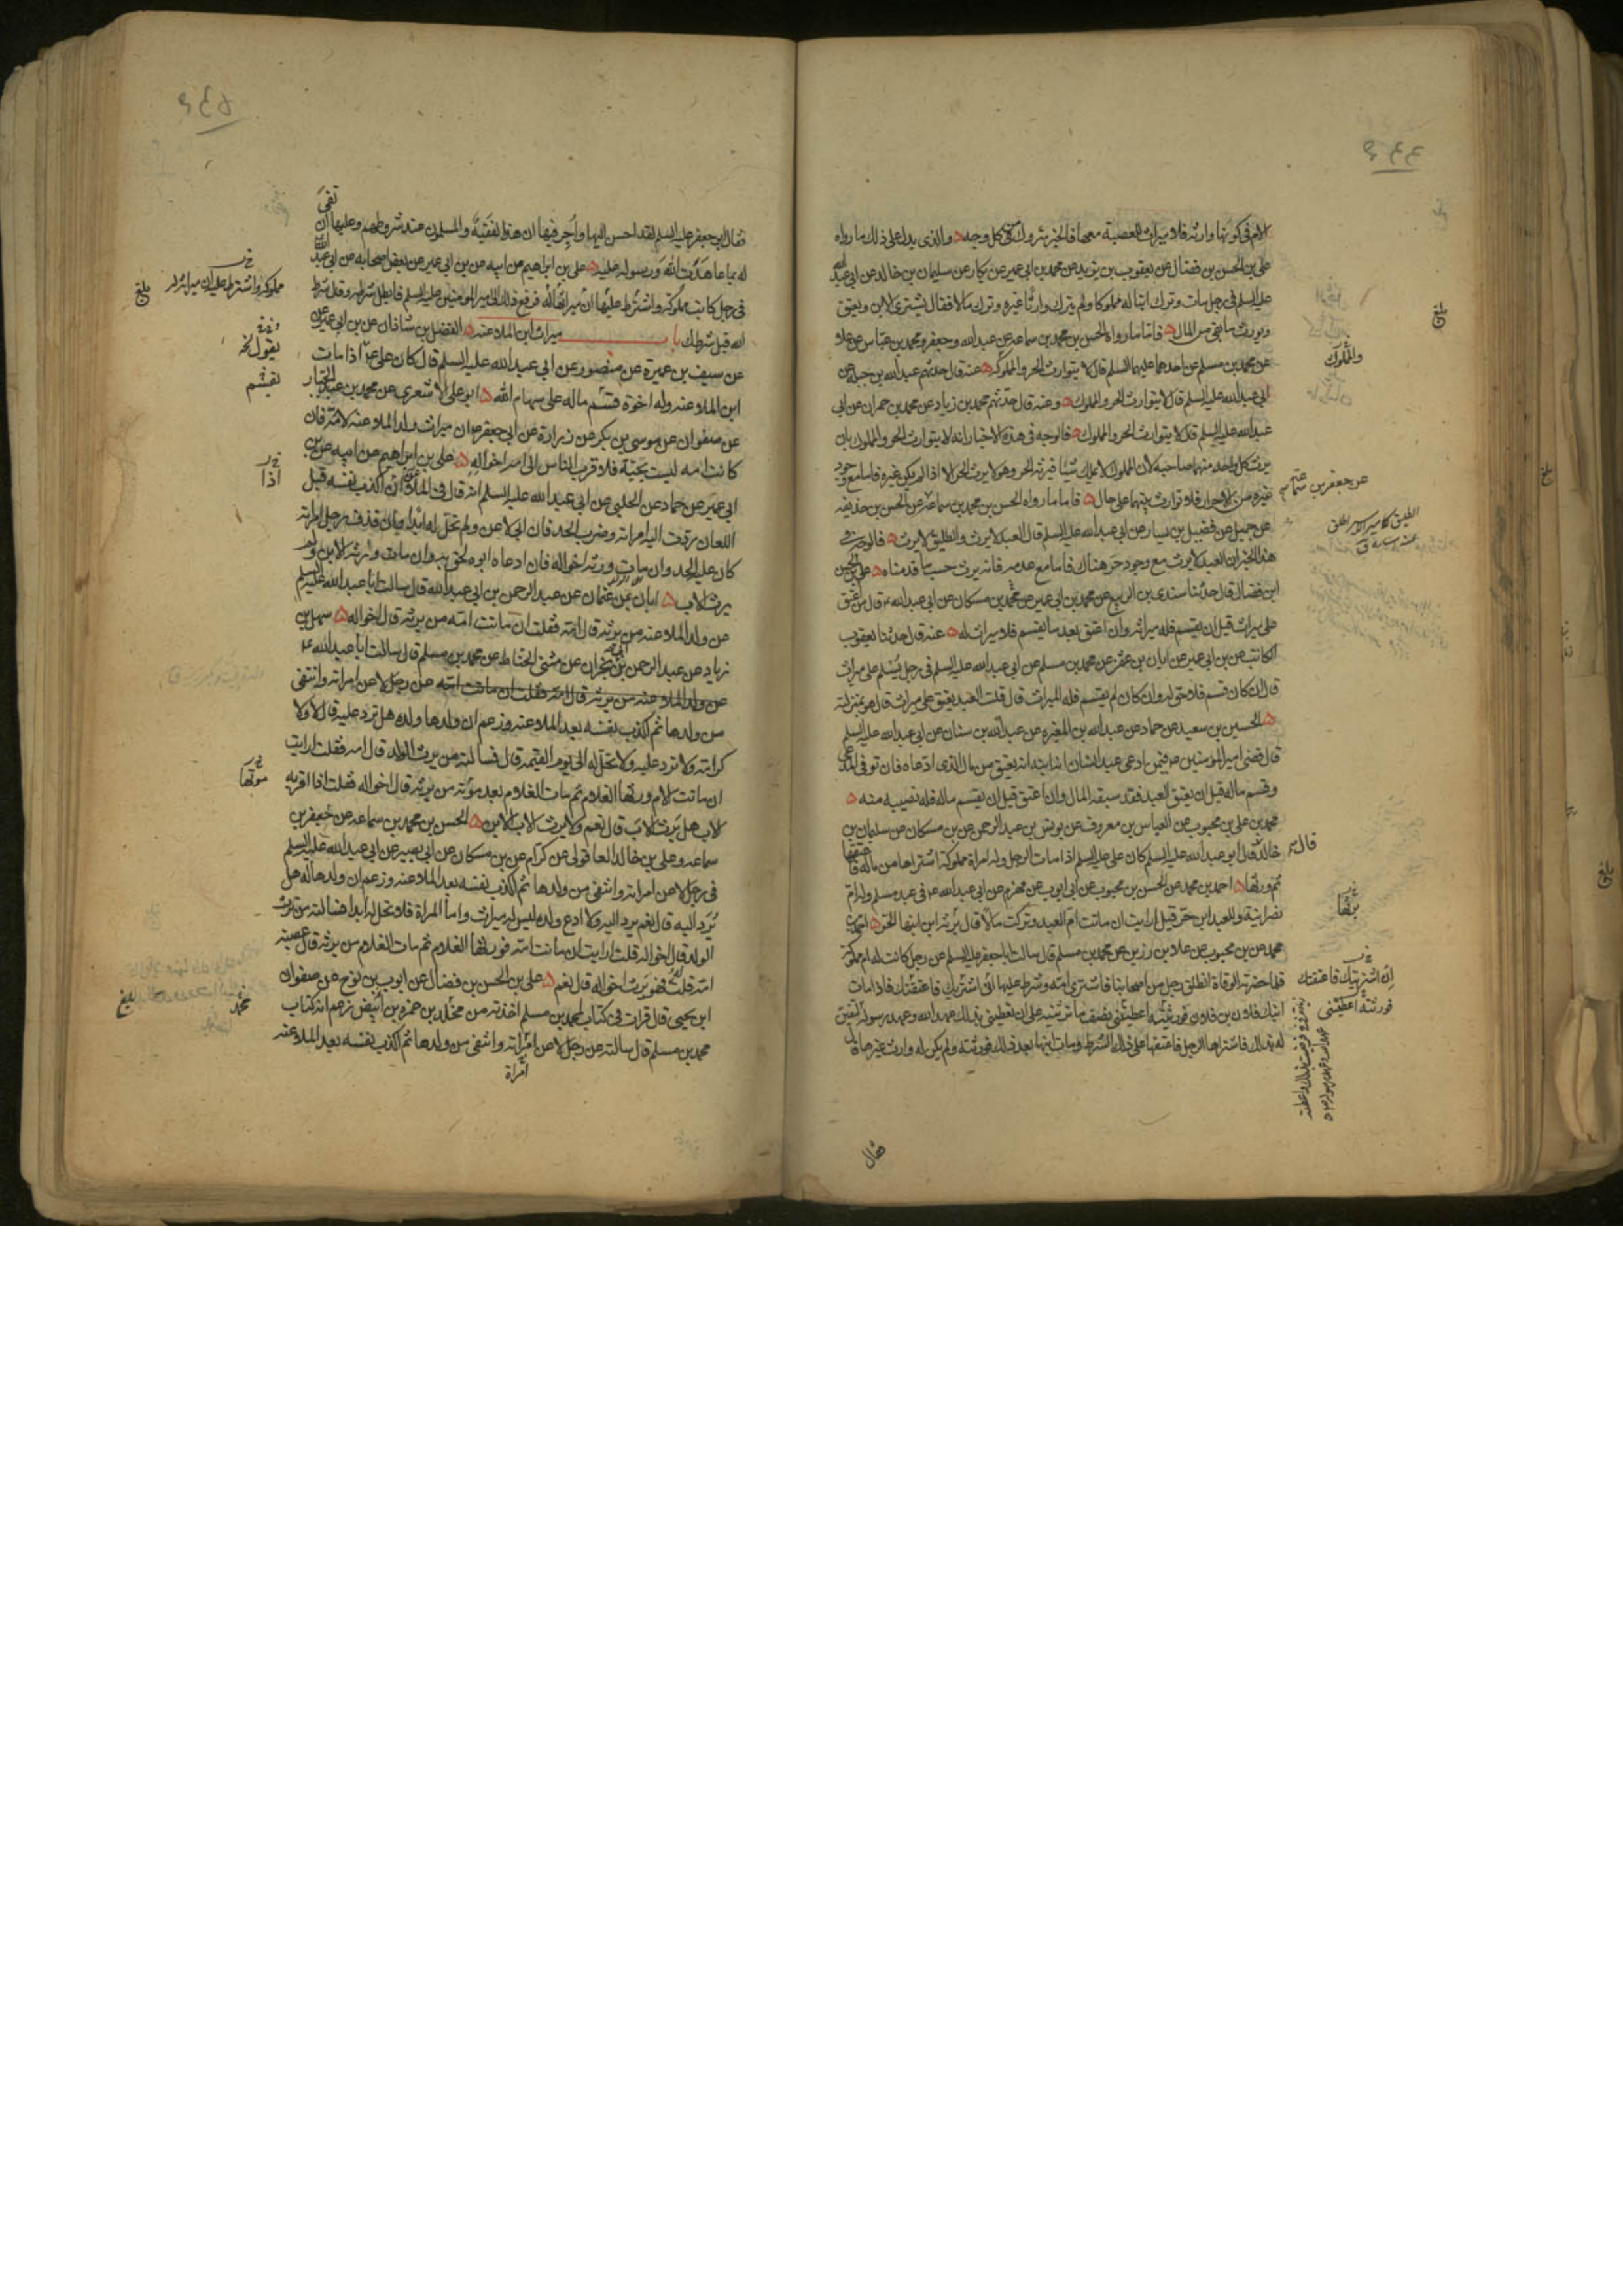 الام في كونها وارثه فلا ميراث للعصبة معها فالخبر متروك من كل وجه والذي يدل على ذلك ما رواه
علي بن الحسن بن فضال عن يعقوب بن يزيد عن محمد بن ابي عمير عن بكار عن سليمان بن خالد عن ابي عبد الله
عليه السلم في رجل مات وترك ابنا له مملوكا ولم يترك وارثا غيره وترك مالا فقال يشترى الابن ويعتق
ويورث ما بقي من المال فاما ما رواه الحسن بن محمد بن سماعة عن عبيد الله وجعفر ومحمد بن عباس عن علا
عن محمد بن مسلم عن احدهما عليهما السلم قال لا يتوارث الحر والمملوك عنه قال حدثهم عبد الله بن جبلة عن
ابي عبد الله عليه السلم قال لا يتوارث الحر والمملوك وعنه قال حدثهم محمد بن زياد عن محمد بن حمران عن ابي
عبد الله عليه السلم قال لا يتوارث الحر والمملوك فالوجه في هذه الاخبار انه لا يتوارث الحر والمملوك بان
يرث كل واحد منهما صاحبه لان المملوك لا يملك شيئا فيرثه الحر وهو لا يرث الحر الا اذا لم يكن غيره فاما مع وجود
غيره من الاحرار فلا توارث بينهما على حال فاما ما رواه الحسن بن محمد بن سماعة عن الحسن بن حذيفه
عن جميل عن فضيل بن يسار عن ابي عبد الله عليه السلم قال العبد لا يرث والطليق لا يرث فالوجه في
هذا الخبر ان العبد لا يورث مع وجود حر هناك فاما مع عدمه فانه يرث حسب ما قدمناه علي بن الحسن
ابن فضال قال حدثنا سندي بن الربيع عن محمد بن ابي عمير عن محمد بن مسكان عن ابي عبد الله ع قال من اعتق
على ميراث قبل ان يقسم فله ميراثه وان اعتق بعد ما يقسم فلا ميراث له عنه قال حدثنا يعقوب
الكاتب عن بن ابي عمير عن ابان بن عثمن عن محمد بن مسلم عن ابي عبد الله عليه السلم في رجل يسلم على ميراث
قال ان كان قسم فلا حق له وان كان لم يقسم فله الميراث قال قلت العبد يعتق على ميراث قال هو بمنزلته
الحسين بن سعيد عن حماد عن عبد الله بن المغيره عن عبد الله بن سنان عن ابي عبد الله عليه السلم
قال قضى امير المؤمنين ع فيمن ادعى عبد انسان انه ابنه انه يعتق من مال الذي ادعاه فان توفي المدعي
وقسم ماله قبل ان يعتق العبد فقد سبقه المال وان اعتق قبل ان يقسم ماله فله نصيبه منه
محمد بن علي بن محبوب عن العباس بن معروف عن يونس بن عبد الرحمن عن بن مسكان عن سليمان بن
خالد قال قال ابو عبد الله عليه السلم كان علي عليه السلم اذا مات الرجل وله امراة مملوكة اشتراها من ماله فاعتقها
ثم ورثها احمد بن محمد عن الحسن بن محبوب عن ابي ايوب عن مهزم عن ابي عبد الله ع في عبد مسلم وله ام
نصرانية وللعبد ابن حر قيل ارايت ان ماتت ام العبد وتركت مالا قال يرثه ابن ابنها الحر احمد بن
محمد عن بن محبوب عن علا بن رزين عن محمد بن مسلم قال سالت ابا جعفر عليه السلم عن رجل كانت له ام مملوكة
فلما حضرته الوفاة انطلق رجل من اصحابنا فاشترى امه وشرط عليها اني اشتريك فاعتقتك فاذا مات
ابنك فلان بن فلان فورثتيه اعطيتني نصف ما ترثينه على ان تعطيني بذلك عهد الله وعهد رسوله لتفين
له بذلك فاشتراها الرجل فاعتقها على ذلك الشرط ومات ابنها بعد ذلك فورثته ولم يكن له وارث غيرها قال
فقال
والمملوك
بلغ
عن جعفر بن
قال
يرثها
اني اشتريتك فاعتقتك
فورثته اعطيتني
فقال ابو جعفر عليه السلم لقد احسن اليها واجر فيها ان هذا لفقيه والمسلمون عند شروطهم وعليها ان تفي
له بما عاهدت الله ورسوله عليه علي بن ابراهيم عن ابيه عن بن ابي عمير عن بعض اصحابه عن ابي عبد الله
في رجل كاتب مملوكه واشترط عليها ان ميراثها له فرفع ذلك الى امير المؤمنين عليه السلم فابطل شرطه وقال شرط
الله قبل شرطك باب ميراث ابن الملاعنه الفضل بن شاذان عن بن ابي عمير
عن سيف بن عميرة عن منصور عن ابي عبد الله عليه السلم قال كان علي ع اذا مات
ابن الملاعنه وله اخوة قسم ماله على سهام الله ابو علي الاشعري عن محمد بن عبد الجبار
عن صفوان عن موسى بن بكر عن زرارة عن ابي جعفر ع ان ميراث ولد الملاعنه لامه فان
كانت امه ليست بحية فلاقرب الناس الى امه اخواله علي بن ابراهيم عن ابيه عن بن
ابي عمير عن حماد عن الحلبي عن ابي عبد الله عليه السلم انه قال في الملاعن ان اكذب نفسه قبل
اللعان ردت اليه امراته وضرب الحد فان ابى لاعن ولم تحل له ابدا وان قذف رجل امراته
كان عليه الحد وان مات ولده ورثه اخواله فان ادعاه ابوه لحق به وان مات ورثه الابن ولم
يرث الاب ابان عن عثمان عن عبد الرحمن بن ابي عبد الله قال سالت ابا عبد الله عليه السلم
عن ولد الملاعنه من يرثه قال امه فقلت ان ماتت امه من يرثه قال اخواله سهل بن
زياد عن عبد الرحمن بن ابي نجران عن مثنى الحناط عن محمد بن مسلم قال سالت ابا عبد الله ع
عن ولد الملاعنه من يرثه قال امه فقلت ان ماتت امه عن رجل لاعن امراته وانتفى
من ولدها ثم اكذب نفسه بعد الملاعنه وزعم ان ولدها ولده هل ترد عليه قال لا ولا
كرامة ولا ترد عليه ولا تحل له الى يوم القيمه قال فسالته من يرث الولد قال امه فقلت ارايت
ان ماتت الام ورثها الغلام ثم مات الغلام بعد موته من يرثه قال اخواله فقلت اذا اقر به
الاب هل يرث الاب قال نعم ولا يرث الاب الابن الحسن بن محمد بن سماعه عن جعفر بن
سماعه وعلي بن خالد العاقولي عن كرام عن بن مسكان عن ابي بصير عن ابي عبد الله عليه السلم
في رجل لاعن امراته وانتفى من ولدها ثم اكذب نفسه بعد الملاعنه وزعم ان ولدها له هل
يرد اليه قال نعم يرد اليه ولا ادع ولده ليس له ميراث واما المراة فلا تحل له ابدا فسالته من يرث
الولد قال اخواله قلت ارايت ان ماتت امه فورثها الغلام ثم مات الغلام من يرثه قال عصبة
امه قلت فهو يرث اخواله قال نعم علي بن الحسن بن فضال عن ايوب بن نوح عن صفوان
ابن يحيى قال قرات في كتاب لمحمد بن مسلم اخذته من مخلد بن حمزه بن ابيض زعم انه كتاب
محمد بن مسلم قال سالته عن رجل لاعن امراته وانتفى من ولدها ثم اكذب نفسه بعد الملاعنه
امراة
بلغ
يقول
يقسم
اذا
موتها
محمد
بلغ